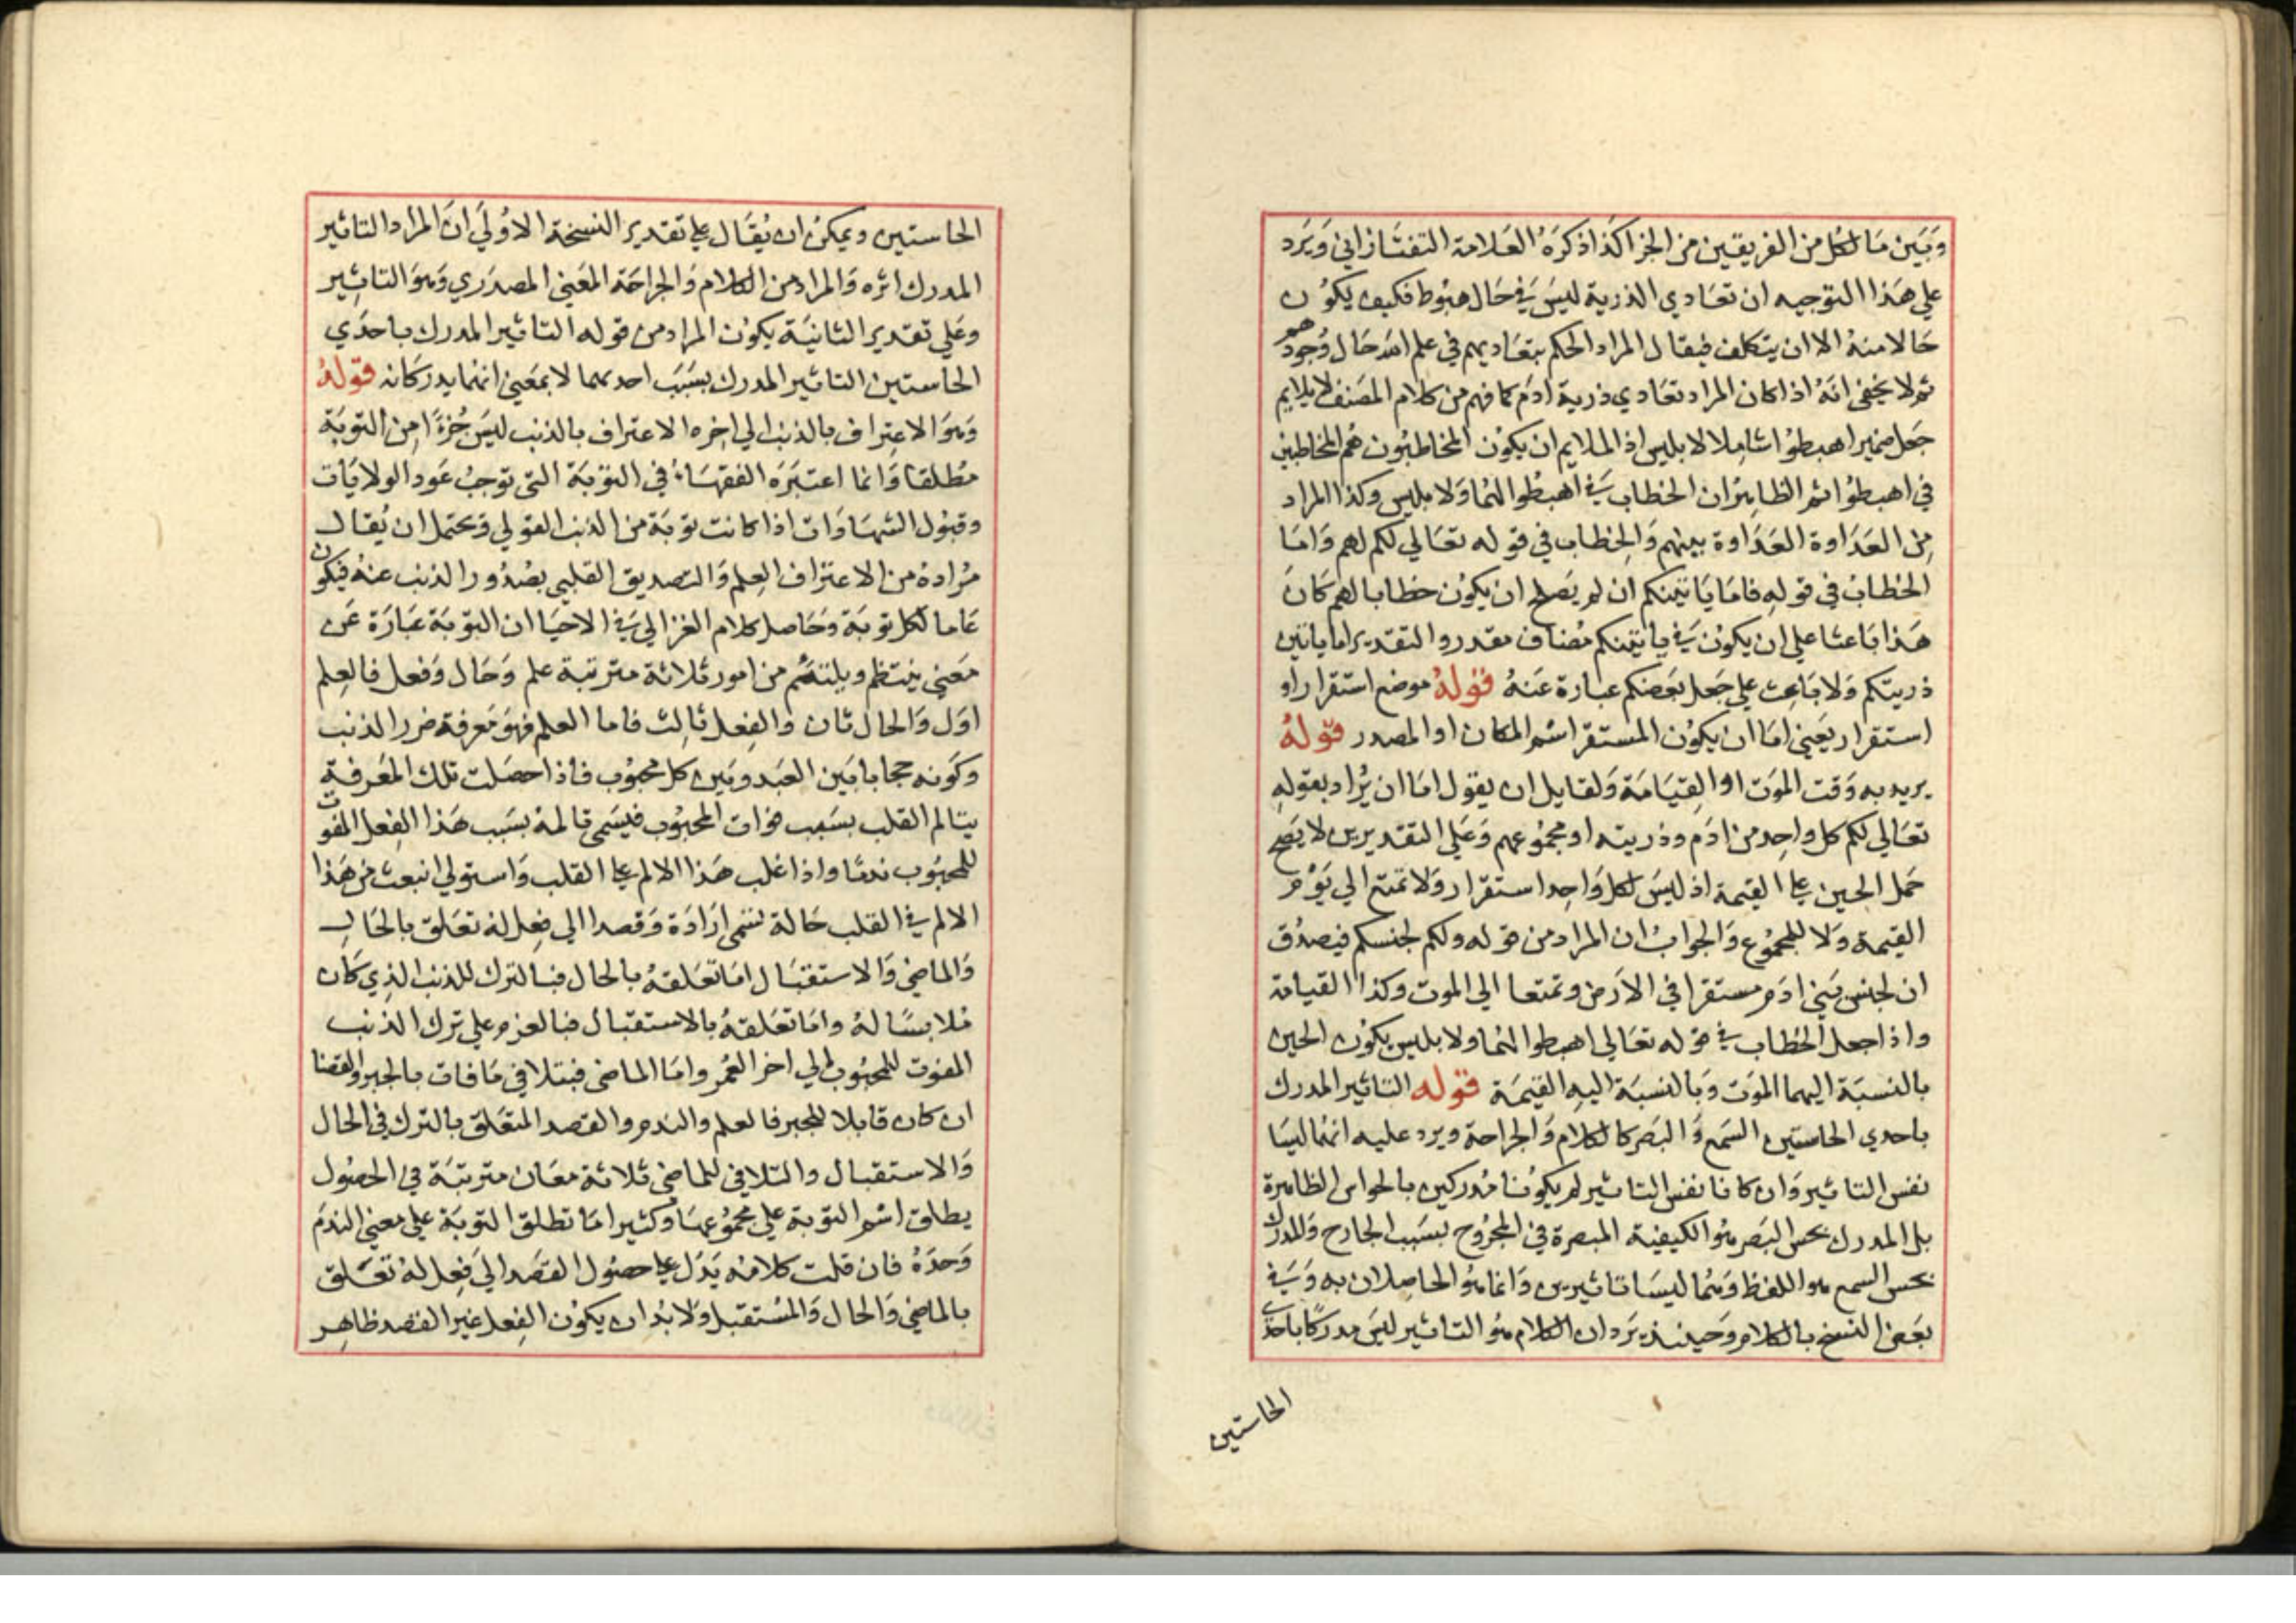 وبين ما لكل من الفريقين من الجزا كذا ذكره العلامة التفتازاني ويرد
علي هذا التوجيه ان تعادي الذرية ليس في حال هبوط فكيف يكون
حالا منه الا ان يتكلف فيقال المراد الحكم بتعاديهم في علم الله حال وجود هو
ثم لا يخفي انه اذا كان المراد تعادي ذرية ادم كما فهم من كلام المصنف لا يلايم
جعل ضمير اهبطوا شاملا لابليس اذ الملايم ان يكون المخاطبون هم المخاطبين
في اهبطوا ثم الظاهر ان الخطاب في اهبطوا لهما ولابليس وكذا المراد
من العداوة العداوة بينهم والخطاب في قوله تعالي لكم لهم واما
الخطاب في قوله فاما ياتينكم ان لم يصلح ان يكون خطابا لهم كان
هذا باعثا علي ان يكون في ياتينكم مضاف مقدر والتقدير اما ياتين
ذريتكم ولا باعث علي جعل بعضكم عبارة عنه قوله موضع استقرار او
استقرار يعني اما ان يكون المستقر اسم المكان او المصدر قوله
يريد به وقت الموت او القيامة ولقايل ان يقول اما ان يراد بقوله
تعالي لكم كل واحد من ادم وذريته او مجموعهم وعلي التقديرين لا يصح
حمل الحين علي القيمة اذ ليس لكل واحد استقرار ولا تمتع الي يوم
القيمة ولا للمجموع والجواب ان المراد من قوله ولكم لجنسكم فيصدق
ان لجنس بني ادم مستقرا في الارض وتمتعا الي الموت وكذا القيامة
واذا جعل الخطاب في قوله تعالي اهبطوا لهما ولابليس يكون الحين
بالنسبة اليهما الموت وبالنسبة اليه القيمة قوله التاثير المدرك
باحدي الحاستين السمع والبصر كالكلام والجراحة ويرد عليه انهما ليسا
نفس التاثير وان كانا نفس التاثير لم يكونا مدركين بالحواس الظاهرة
بل المدرك بحس البصر هو الكيفية المبصرة في المجروح بسبب الجارح والمدرك
بحس السمع هو اللفظ وهما ليسا تاثيرين وانما هو الحاصلان به وفي
بعض النسخ بالكلام وحينئذ يرد ان الكلام هو التاثير ليس مدركا باحدي
الحاستين
الحاستين ويمكن ان يقال علي تقدير النسخة الاولي ان المراد التاثير
المدرك اثره والمراد من الكلام والجراحة المعني المصدري وهو التاثير
وعلي تقدير الثانية يكون المراد من قوله التاثير المدرك باحدي
الحاستين التاثير المدرك بسبب احدهما لا بمعني انهما يدركانه قوله
وهو الاعتراف بالذنب الي اخره الاعتراف بالذنب ليس جزءا من التوبة
مطلقا وانما اعتبره الفقهاء في التوبة التي توجب عود الولايات
وقبول الشهادات اذا كانت توبة من الذنب القولي ويحتمل ان يقال
مراده من الاعتراف العلم والتصديق القلبي بصدور الذنب عنه فيكون
عاما لكل توبة وحاصل كلام الغزالي في الاحيا ان التوبة عبارة عن
معني ينتظم ويلتئم من امور ثلاثة مترتبة علم وحال وفعل فالعلم
اول والحال ثان والفعل ثالث فاما العلم فهو معرفة ضرر الذنب
وكونه حجابا بين العبد وبين كل محبوب فاذا حصلت تلك المعرفة
يتالم القلب بسبب فوات المحبوب فيسمي تالمه بسبب هذا الفعل المفوت
للمحبوب ندما واذا غلب هذا الالم علي القلب واستولي انبعث من هذا
الالم في القلب حالة تسمي ارادة وقصدا الي فعل له تعلق بالحال
والماضي والاستقبال اما تعلقه بالحال فبالترك للذنب الذي كان
ملابسا له واما تعلقه بالاستقبال فبالعزم علي ترك الذنب
المفوت للمحبوب الي اخر العمر واما الماضي فبتلافي ما فات بالجبر والقضا
ان كان قابلا للجبر فالعلم والندم والقصد المتعلق بالترك في الحال
والاستقبال والتلافي للماضي ثلاثة معان مترتبة في الحصول
يطلق اسم التوبة علي مجموعها وكثيرا ما تطلق التوبة علي معني الندم
وحده فان قلت كلامه يدل علي حصول القصد الي فعل له تعلق
بالماضي والحال والمستقبل ولا بد ان يكون الفعل غير القصد ظاهر